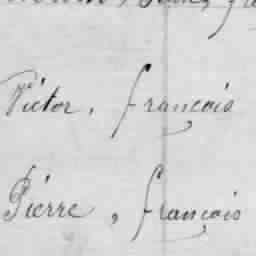 Victor, françois
Pierre, françois